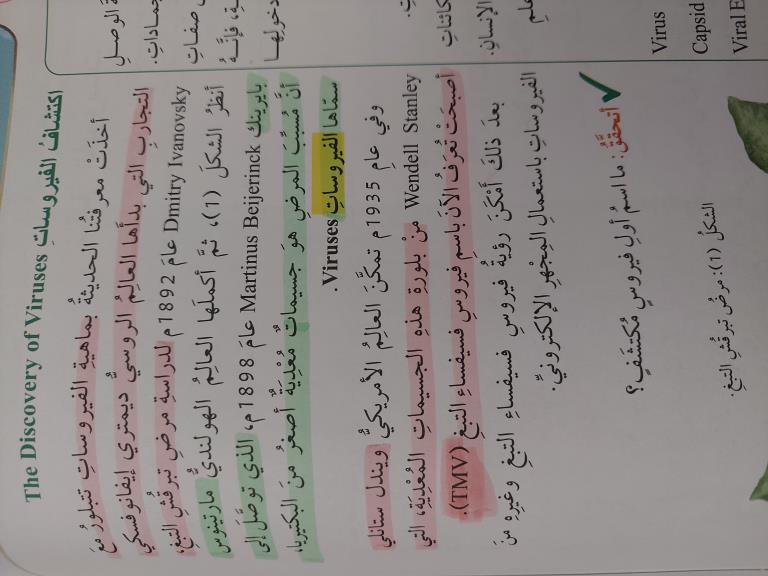 اكتشافُ الفيروساتِ The Discovery of Viruses
أخذَتْ معرفتُنا الحديثةُ بماهيةِ الفيروساتِ تتبلورُ معَ
التجاربِ التي بدأَها العالِمُ الروسيُّ ديمتري إيفانوفسكي
Dmitry Ivanovsky عامَ 1892م لدراسةِ مرضِ تبرقُشِ التبغِ،
أنظرُ الشكلَ (1)، ثمَّ أكملَها العالِمُ الهولنديُّ مارتينوس
بايرينك Martinus Beijerinck عامَ 1898م، الذي توصَّلَ إلى
أنَّ مُسبِّبَ المرضِ هوَ جسيماتٌ مُعْدِيَةٌ أصغرُ منَ البكتيريا،
سمّاها الفيروساتِ Viruses.
وفي عامِ 1935م تمكَّنَ العالِمُ الأمريكيُّ ويندل ستانلي
Wendell Stanley منْ بلورةِ هذهِ الجسيماتِ المُعْدِيَةِ، التي
أصبحَتْ تُعرَفُ الآنَ باسمِ فيروسِ فسيفساءِ التبغِ (TMV).
بعدَ ذلكَ أمْكنَ رؤيةُ فيروسِ فسيفساءِ التبغِ وغيرِهِ منَ
الفيروساتِ باستعمالِ المِجْهرِ الإلكترونيِّ.
أتحقَّقُ: ما اسمُ أولِ فيروسٍ مُكتشَفٍ؟
الشكلُ (1): مرضُ تبرقُشِ التبغِ.
الوصلِ
جماداتِ.
صفاتِ
فإنَّهُ
دخولِها
الإنسانِ.
علمِ
Virus
Capsid
Viral E